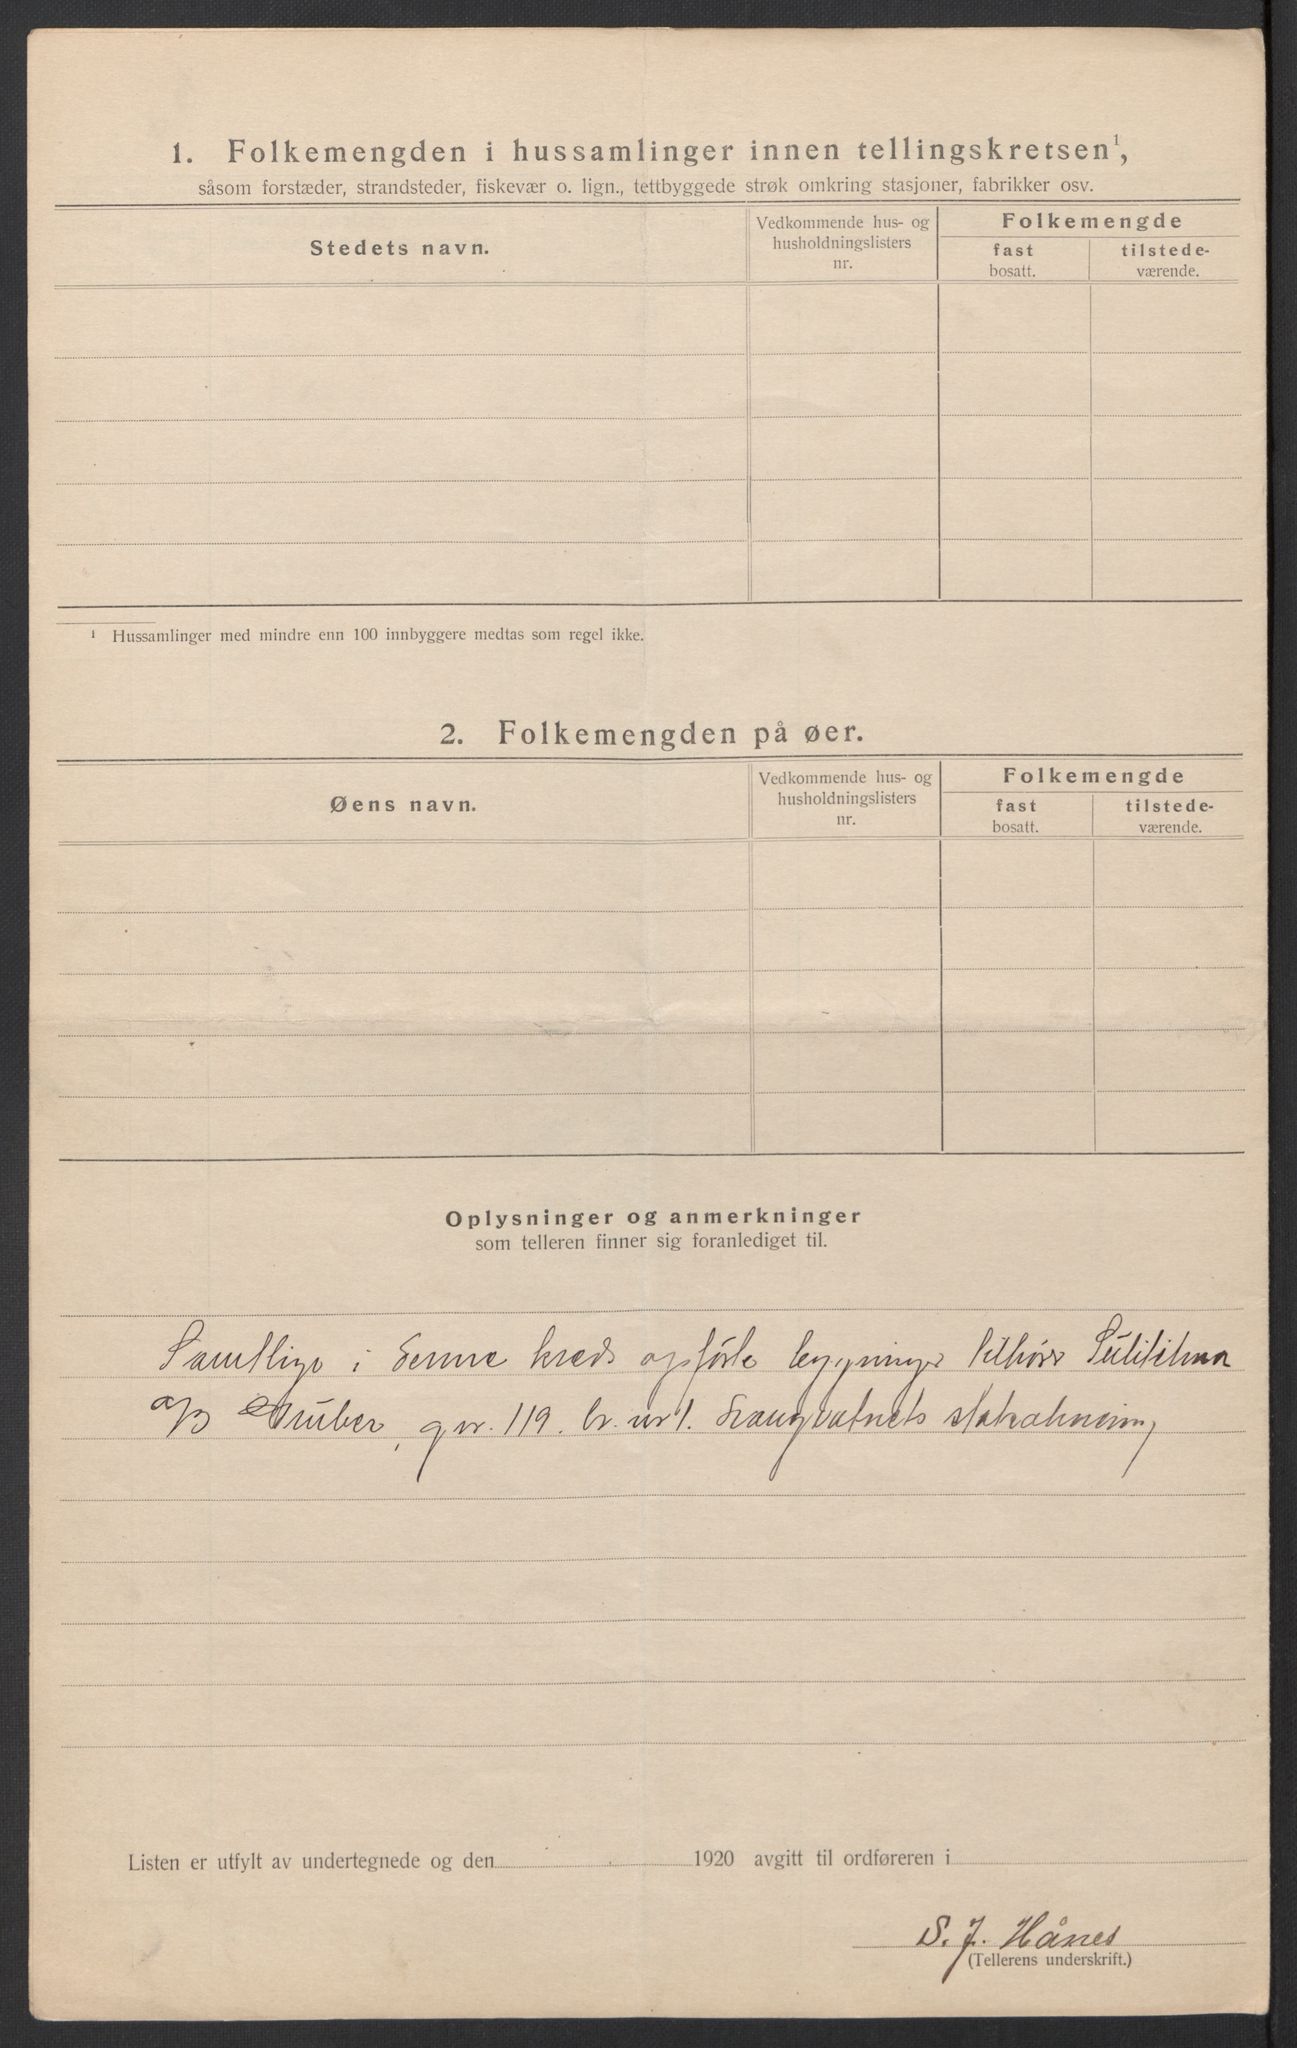 1. Folkemengden i hussamlinger innen tellingskretsen¹,
såsom forstæder, strandsteder, fiskevær o. lign., tettbyggede strøk omkring stasjoner, fabrikker osv.
Stedets navn.
Vedkommende hus- og
husholdningslisters
nr.
Folkemengde
fast
bosatt.
tilstede-
værende.
¹ Hussamlinger med mindre enn 100 innbyggere medtas som regel ikke.
2. Folkemengden på øer.
Øens navn.
Vedkommende hus- og
husholdningslisters
nr.
Folkemengde
fast
bosatt.
tilstede-
værende.
Oplysninger og anmerkninger
som telleren finner sig foranlediget til.
Samtlige i denne kreds opførte bygninger tilhører Sulitelma
a/B Gruber, gnr. 119. br. nr 1. Langvatnets statsalmening
Listen er utfylt av undertegnede og den 1920 avgitt til ordføreren i
S. J. Hånes
(Tellerens underskrift.)